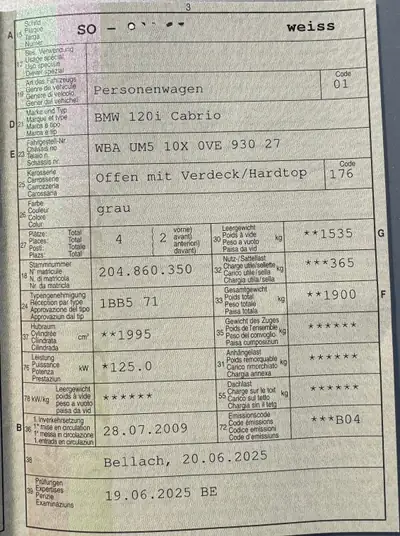 3
A 15 Schild Plaque Targa Numer SO - weiss
17 Bes. Verwendung Usage spécial Uso speciale Diever spezial
19 Art des Fahrzeugs Genre du véhicule Genere di veicolo Gener dal vehichel Personenwagen Code 01
D 21 Marke und Typ Marque et type Marca e tipo Marca e tip BMW 120i Cabrio
E 23 Fahrgestell-Nr. Châssis no Telaio n. Schassis nr. WBA UM5 10X 0VE 930 27
25 Karosserie Carrosserie Carrozzeria Carossaria Offen mit Verdeck/Hardtop Code 176
26 Farbe Couleur Colore Colur grau
27 Plätze: Total Places: Total Posti: Totale Plazs: Total 4 2 vorne) avant) anteriori) davant) 30 Leergewicht Poids à vide Peso a vuoto Paisa da vid kg **1535 G
18 Stammnummer N° matricule N. di matricola Nr. da matricla 204.860.350 32 Nutz-/Sattellast Charge utile/sellette Carico utile/sella Chargia utila/sella kg ***365
24 Typengenehmigung Réception par type Approvazione del tipo Approvaziun dal tip 1BB5 71 33 Gesamtgewicht Poids total Peso totale Paisa totala kg **1900 F
37 Hubraum Cylindrée Cilindrata Cilindrada cm³ **1995 35 Gewicht des Zuges Poids de l'ensemble Peso del convoglio Paisa cumposiziun kg ******
76 Leistung Puissance Potenza Prestaziun kW *125.0 31 Anhängelast Poids remorquable Carico rimorchiato Chargia annexa kg ******
78 kW/kg Leergewicht poids à vide peso a vuoto paisa da vid ****** 55 Dachlast Charge sur le toit Carico sul tetto Chargia sin il tetg kg ******
B 36 1. Inverkehrsetzung 1re mise en circulation 1a messa in circolazione 1. entrada en circulaziun 28.07.2009 72 Emissionscode Code émissions Codice emissioni Code d'emissiuns ***B04
38 Bellach, 20.06.2025
39 Prüfungen Expertises Perizie Examinaziuns 19.06.2025 BE